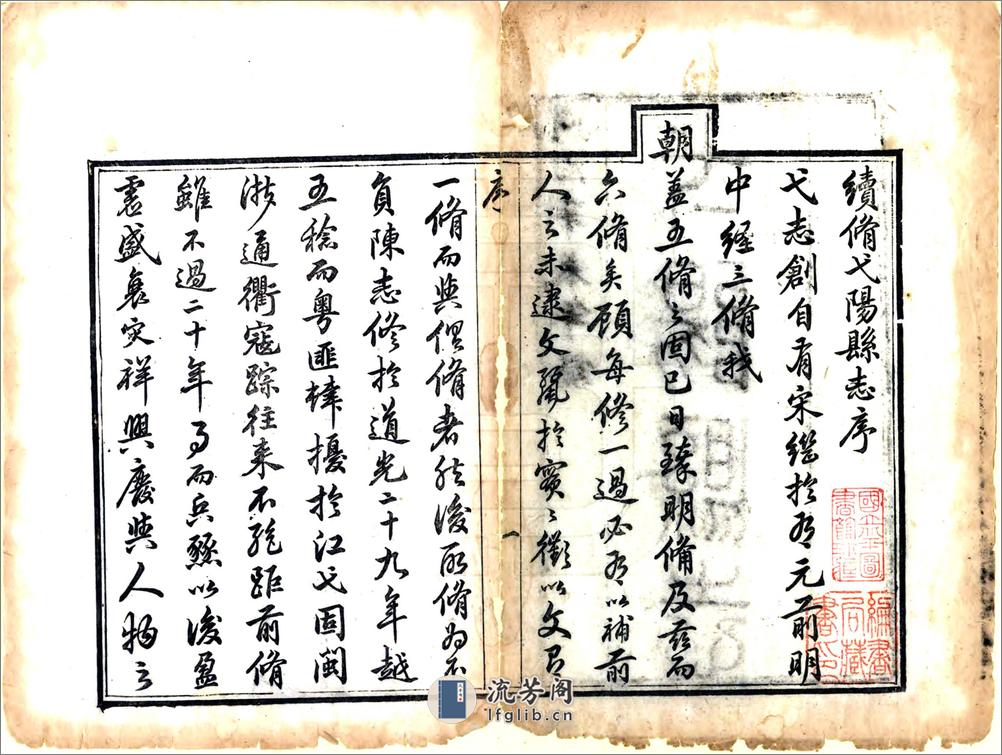 續脩弋陽縣志序
弋志創自有宋繼於有元前明
中經三脩我
朝蓋五脩之固已日臻明備及茲而
六脩矣顧每修一過必有以補前
人之未逮文麗於實實徵以文有
序
一
一脩而與俱脩者然後所脩為不
負陳志修於道光二十九年越
五稔而粵匪肆擾於江弋固閩
浙通衢寇踪往來不絕距前脩
雖不過二十年而兵燹以後盈
虛盛衰灾祥興廢與人物之
流芳阁
lfglib.cn